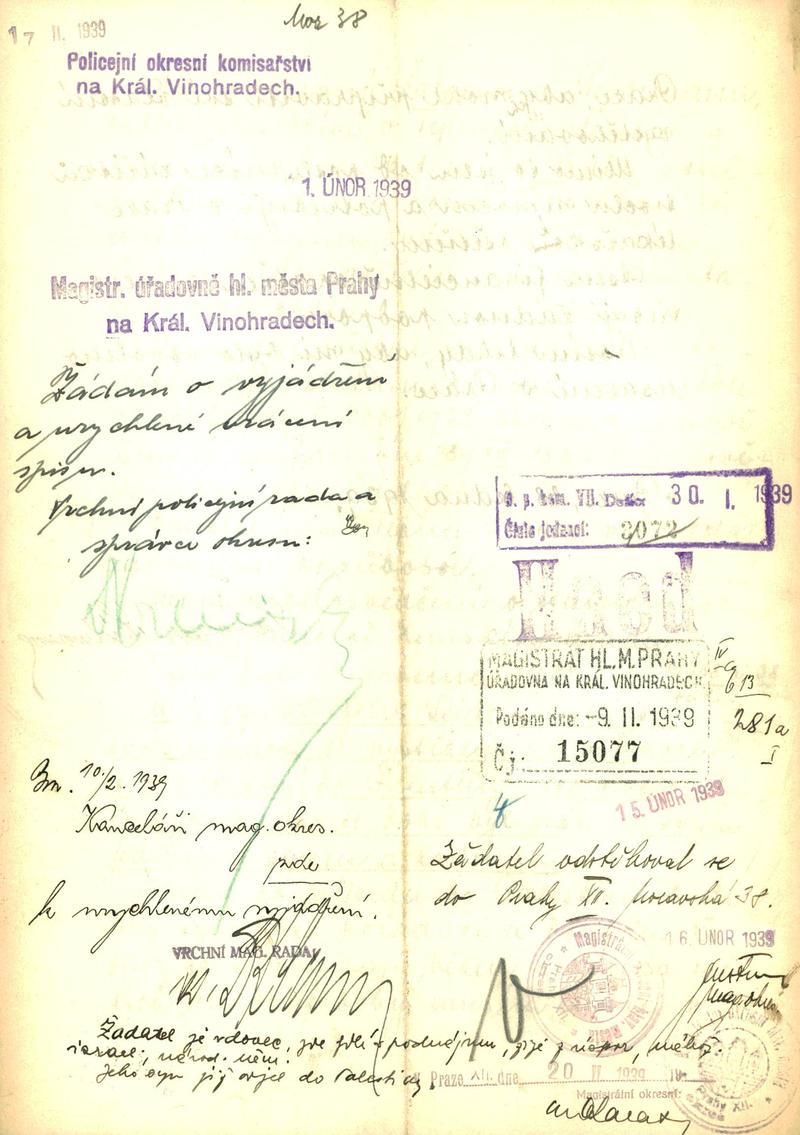 17 II. 1939
Mor 38
Policejní okresní komisařství
na Král. Vinohradech.
1. ÚNOR 1939
Magistr. úřadovně hl. města Prahy
na Král. Vinohradech.
Žádám o vyjádření
a urychlené vrácení
spisu.
Vrchní policejní rada a
správce okresu:
30. I. 1939
Číslo jednací: 3072
MAGISTRÁT HL. M. PRAHY
ÚŘADOVNA NA KRÁL. VINOHRADECH
Podáno dne: -9. II. 1939
Čj.: 15077
IV
613
281a
I
10./2. 1939
Kanceláři mag. okres.
pde
k urychlenému vyjádření.
VRCHNÍ MAG. RADA:
15. ÚNOR 1939
Žadatel odstěhoval se
do Prahy XII. Moravská 38.
16. ÚNOR 1939
Žadatel je vdovec, zde žije v podnájmu, žije z úspor, nábož.
israel., národ. něm.
Jeho syn již odjel do Palestiny.
V Praze XII. dne 20 II 1939
Magistrátní okresní:
Prahy XII.